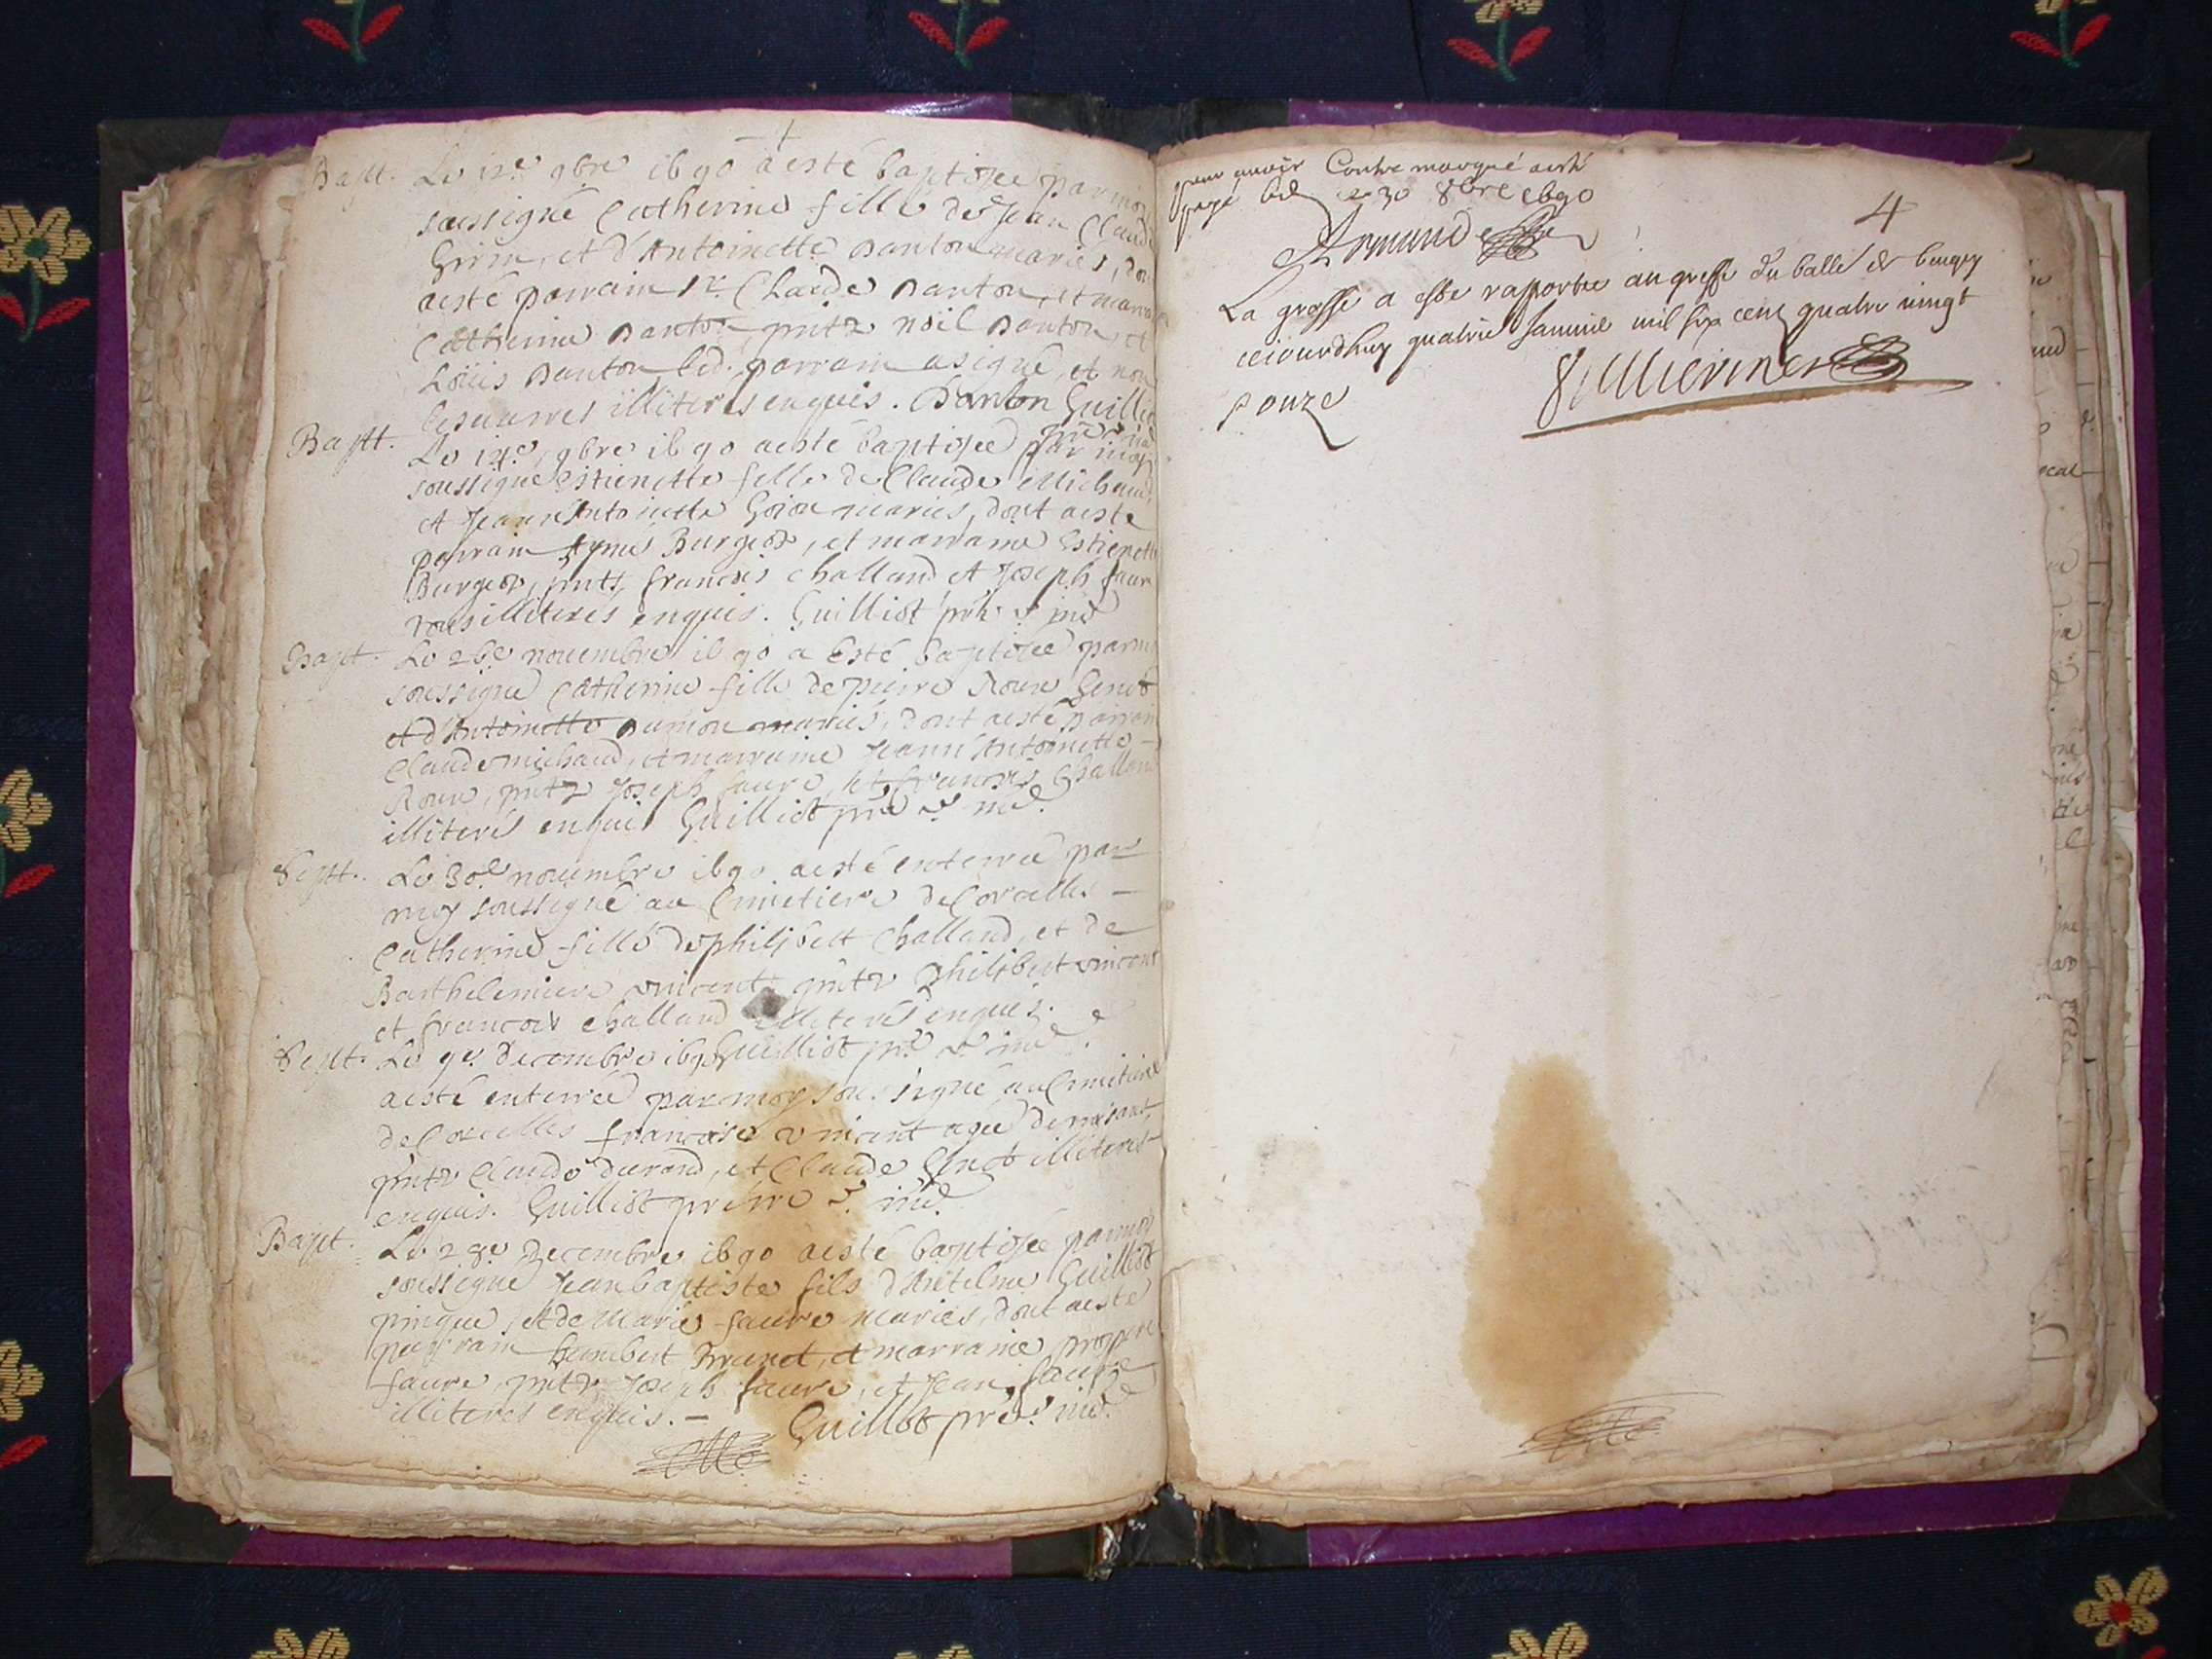 Bapt. Le 12.e 9bre 1690 a esté baptisée par moy
soussigné Catherine fille de Jean Claude
Girin, et d'Antoinette Danton mariés, don
a esté parrain Sr. Claude Danton, et marra
Catherine Danton, pntz Noël Danton, et
Loüis Danton led. parrain a signé, et non
les autres illiterés enquis. Danton Guilliot
Bapt. Le 14.e 9bre 1690 a esté baptisée par moy
soussigné Estienette fille de Claude Michaud,
et Jeann'Antoinette Goion mariés, dont a esté
parrain Aymé Burgod, et marraine Estienette
Burgod, pntz francois Challand et Joseph faure
tous illiterés enquis. Guilliot pr̃e
Bapt. Le 26e novembre 1690 a Esté baptisée par moy
soussigné Catherine fille de pierre Roux Genot
et d'Antoinette Dumon mariés, dont a esté parrain
Claude michaud, et marraine Jeann'Antoinette
Roux, pntz Joseph faure, et francois Challand
illiterés enquis Guilliot pr̃e
Sept. Le 30.e novembre 1690 a esté enterrée par
moy soussigné au Cimetiere de Corcelles
Catherine fille de philibert Challand, et de
Barthelemiere vincent pntz Philibert vincent
et francois Challand illiterés enquis.
Guilliot pr̃e
Sept. Le 9e. Decembre 1690
a esté enterrée par moy sou.signé au Cimetiere
de Corcelles francoise vincent agée de
pntz Claude durand, et Claude Genot illiterés
enquis. Guilliot prestre
Bapt. Le 28.e Decembre 1690 a esté baptisée par moy
soussigné Jean baptiste fils d'Antelme Guilliot
pingue, et de Marie faure mariés, dont a esté
parrain humbert Brunet, et marraine
faure, pntz Joseph faure, et Jean faure
illiterés enquis. Guilliot pr̃e
pour avoir Contre marqué a esté
payé 30 8bre 1690
4
La grosse a este rapportee au greffe du balle de beugey
ceiourdhuy quatrie Janvie mil six cent quatre vingt
onze